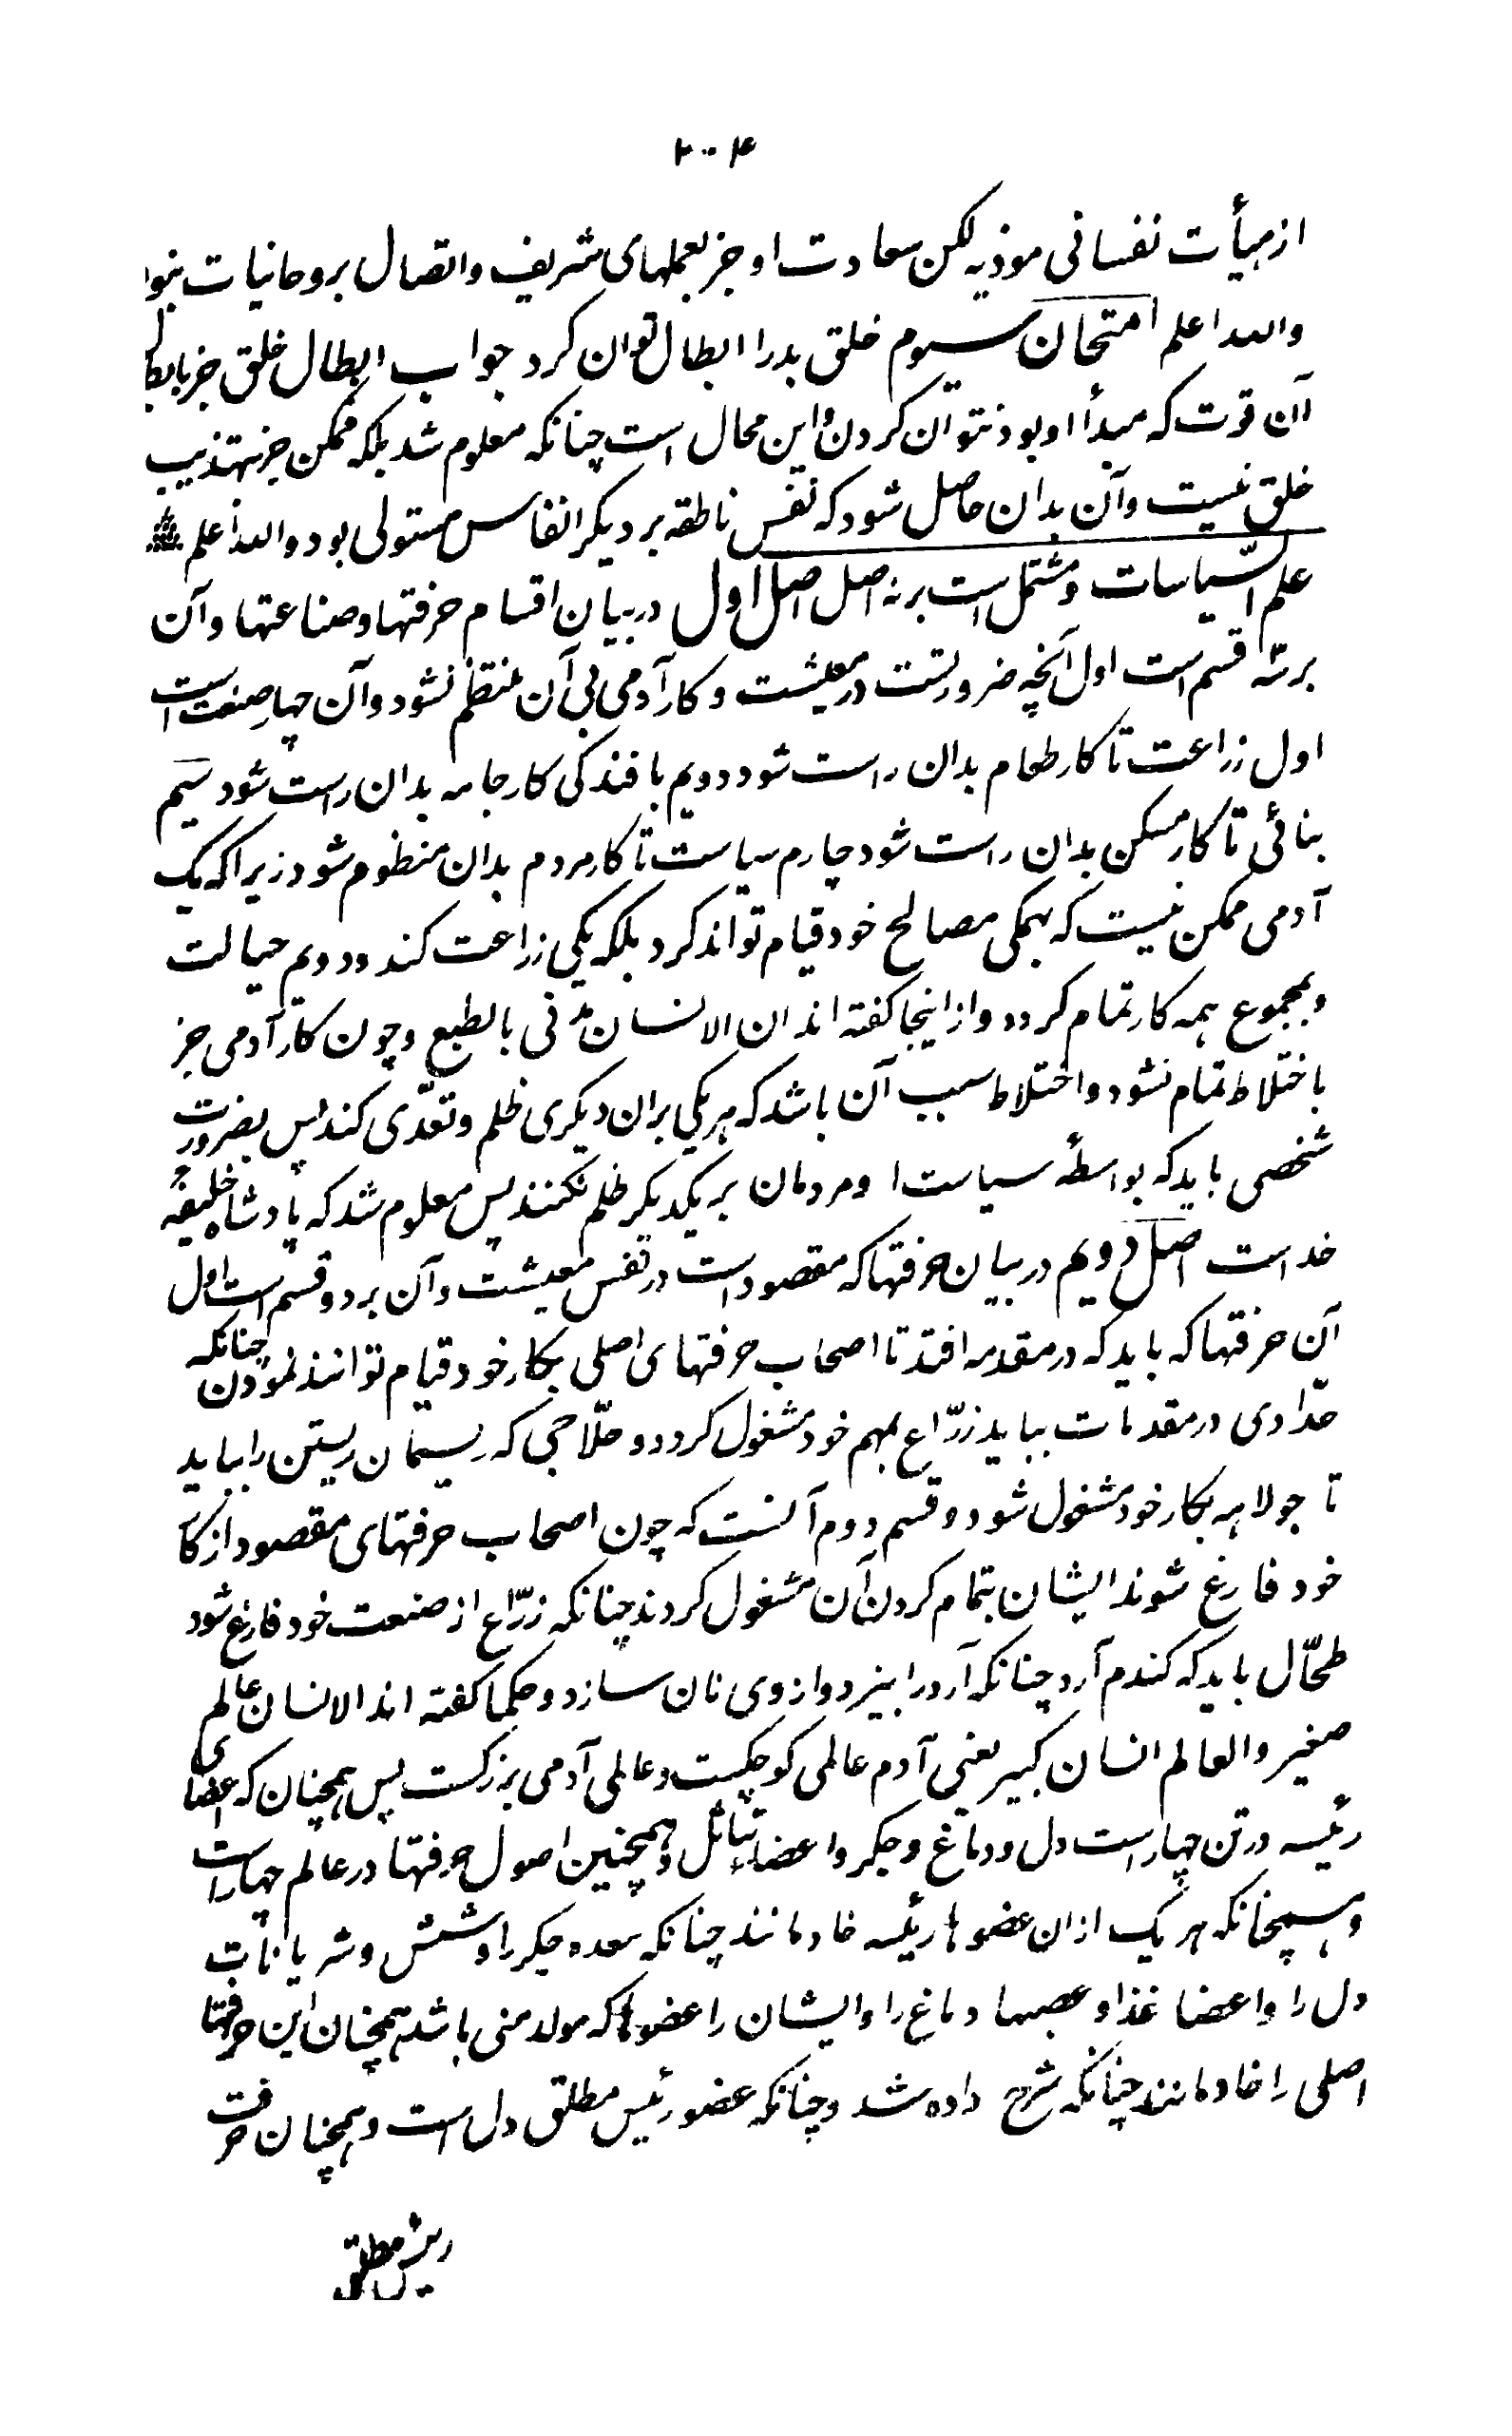 ۲۰۴
از هیأت نفسانی موذیه لکن سعادت او جز بعملهای شریف و اتصال بروحانیات نبود
والله اعلم امتحان سیوم خلق بد را ابطال توان کرد جواب ابطال خلق جز بابطال
آن قوت که مبدأ او بود نتوان کردن و این محال است چنانکه معلوم شد بلکه ممکن جز تهذیب
خلق نیست و آن بدان حاصل شود که نفس ناطقه بر دیگر انفاس مستولی بود والله اعلم
علم السیاسات و مشتمل است بر نه اصل اصل اول در بیان اقسام حرفتها و صناعتها و آن
بر سه قسم است اول آنچه ضروریست در معیشت و کار آدمی بی آن منتظم نشود و آن چهار صنعت است
اول زراعت تا کار طعام بدان راست شود دویم بافندکی کار جامه بدان راست شود سیم
بنائی تا کار مسکن بدان راست شود چارم سیاست تا کار مردم بدان منظوم شود زیرا که یک
آدمی ممکن نیست که بهمکی مصالح خود قیام تواند کرد بلکه یکی زراعت کند و دویم حیاکت
و بمجموع همه کار تمام کردد و از اینجا کفته اند ان الانسان مدنی بالطبع و چون کار آدمی جز
باختلاط تمام نشود و اختلاط سبب آن باشد که هر یکی بران دیکری ظلم و تعدّی کند پس بضرورت
شخصی باید که بواسطهٔ سیاست او مردمان بر یکدیکر ظلم نکنند پس معلوم شد که پادشاه خلیفهٔ
خداست اصل دویم در بیان حرفتها که مقصود است در نفس معیشت و آن بر دو قسم است اول
آن حرفتها که باید که در مقدمه افتد تا اصحاب حرفتهای اصلی بکار خود قیام توانند نمودن چنانکه
حدّادی در مقدمات بباید زرّاع بمهم خود مشغول کردد و حلّاجی که ریسمان ریستن را بباید
تا جولاهه بکار خود مشغول شود و قسم دوم آنست که چون اصحاب حرفتهای مقصود از کار
خود فارغ شوند ایشان بتمام کردن آن مشغول کردند چنانکه زرّاع از صنعت خود فارغ شود
طحّال باید که کندم آرد چنانکه آرد را بپزد و از وی نان سازد و حکما کفته اند الانسان عالم
صغیر و العالم انسان کبیر یعنی آدم عالمی کوچکیست و عالمی آدمی بزرکست پس همچنان که اعضای
رئیسه در تن چهار است دل و دماغ و جکر و اعضاء تناسل و همچنین اصول حرفتها در عالم چهار است
و همچنانکه هر یک از ان عضوها رئیسه خادمانند چنانکه معده جکر را و شش و شریانات
دل را و اعضا غذا و عصبها دماغ را و ایشان را عضوها که مولد منی باشد همچنان این حرفتها
اصلی را خادمانند چنانکه شرح داده شد و چنانکه عضو رئیس مطلق دل است و همچنان حرفت
رئیس مطلق